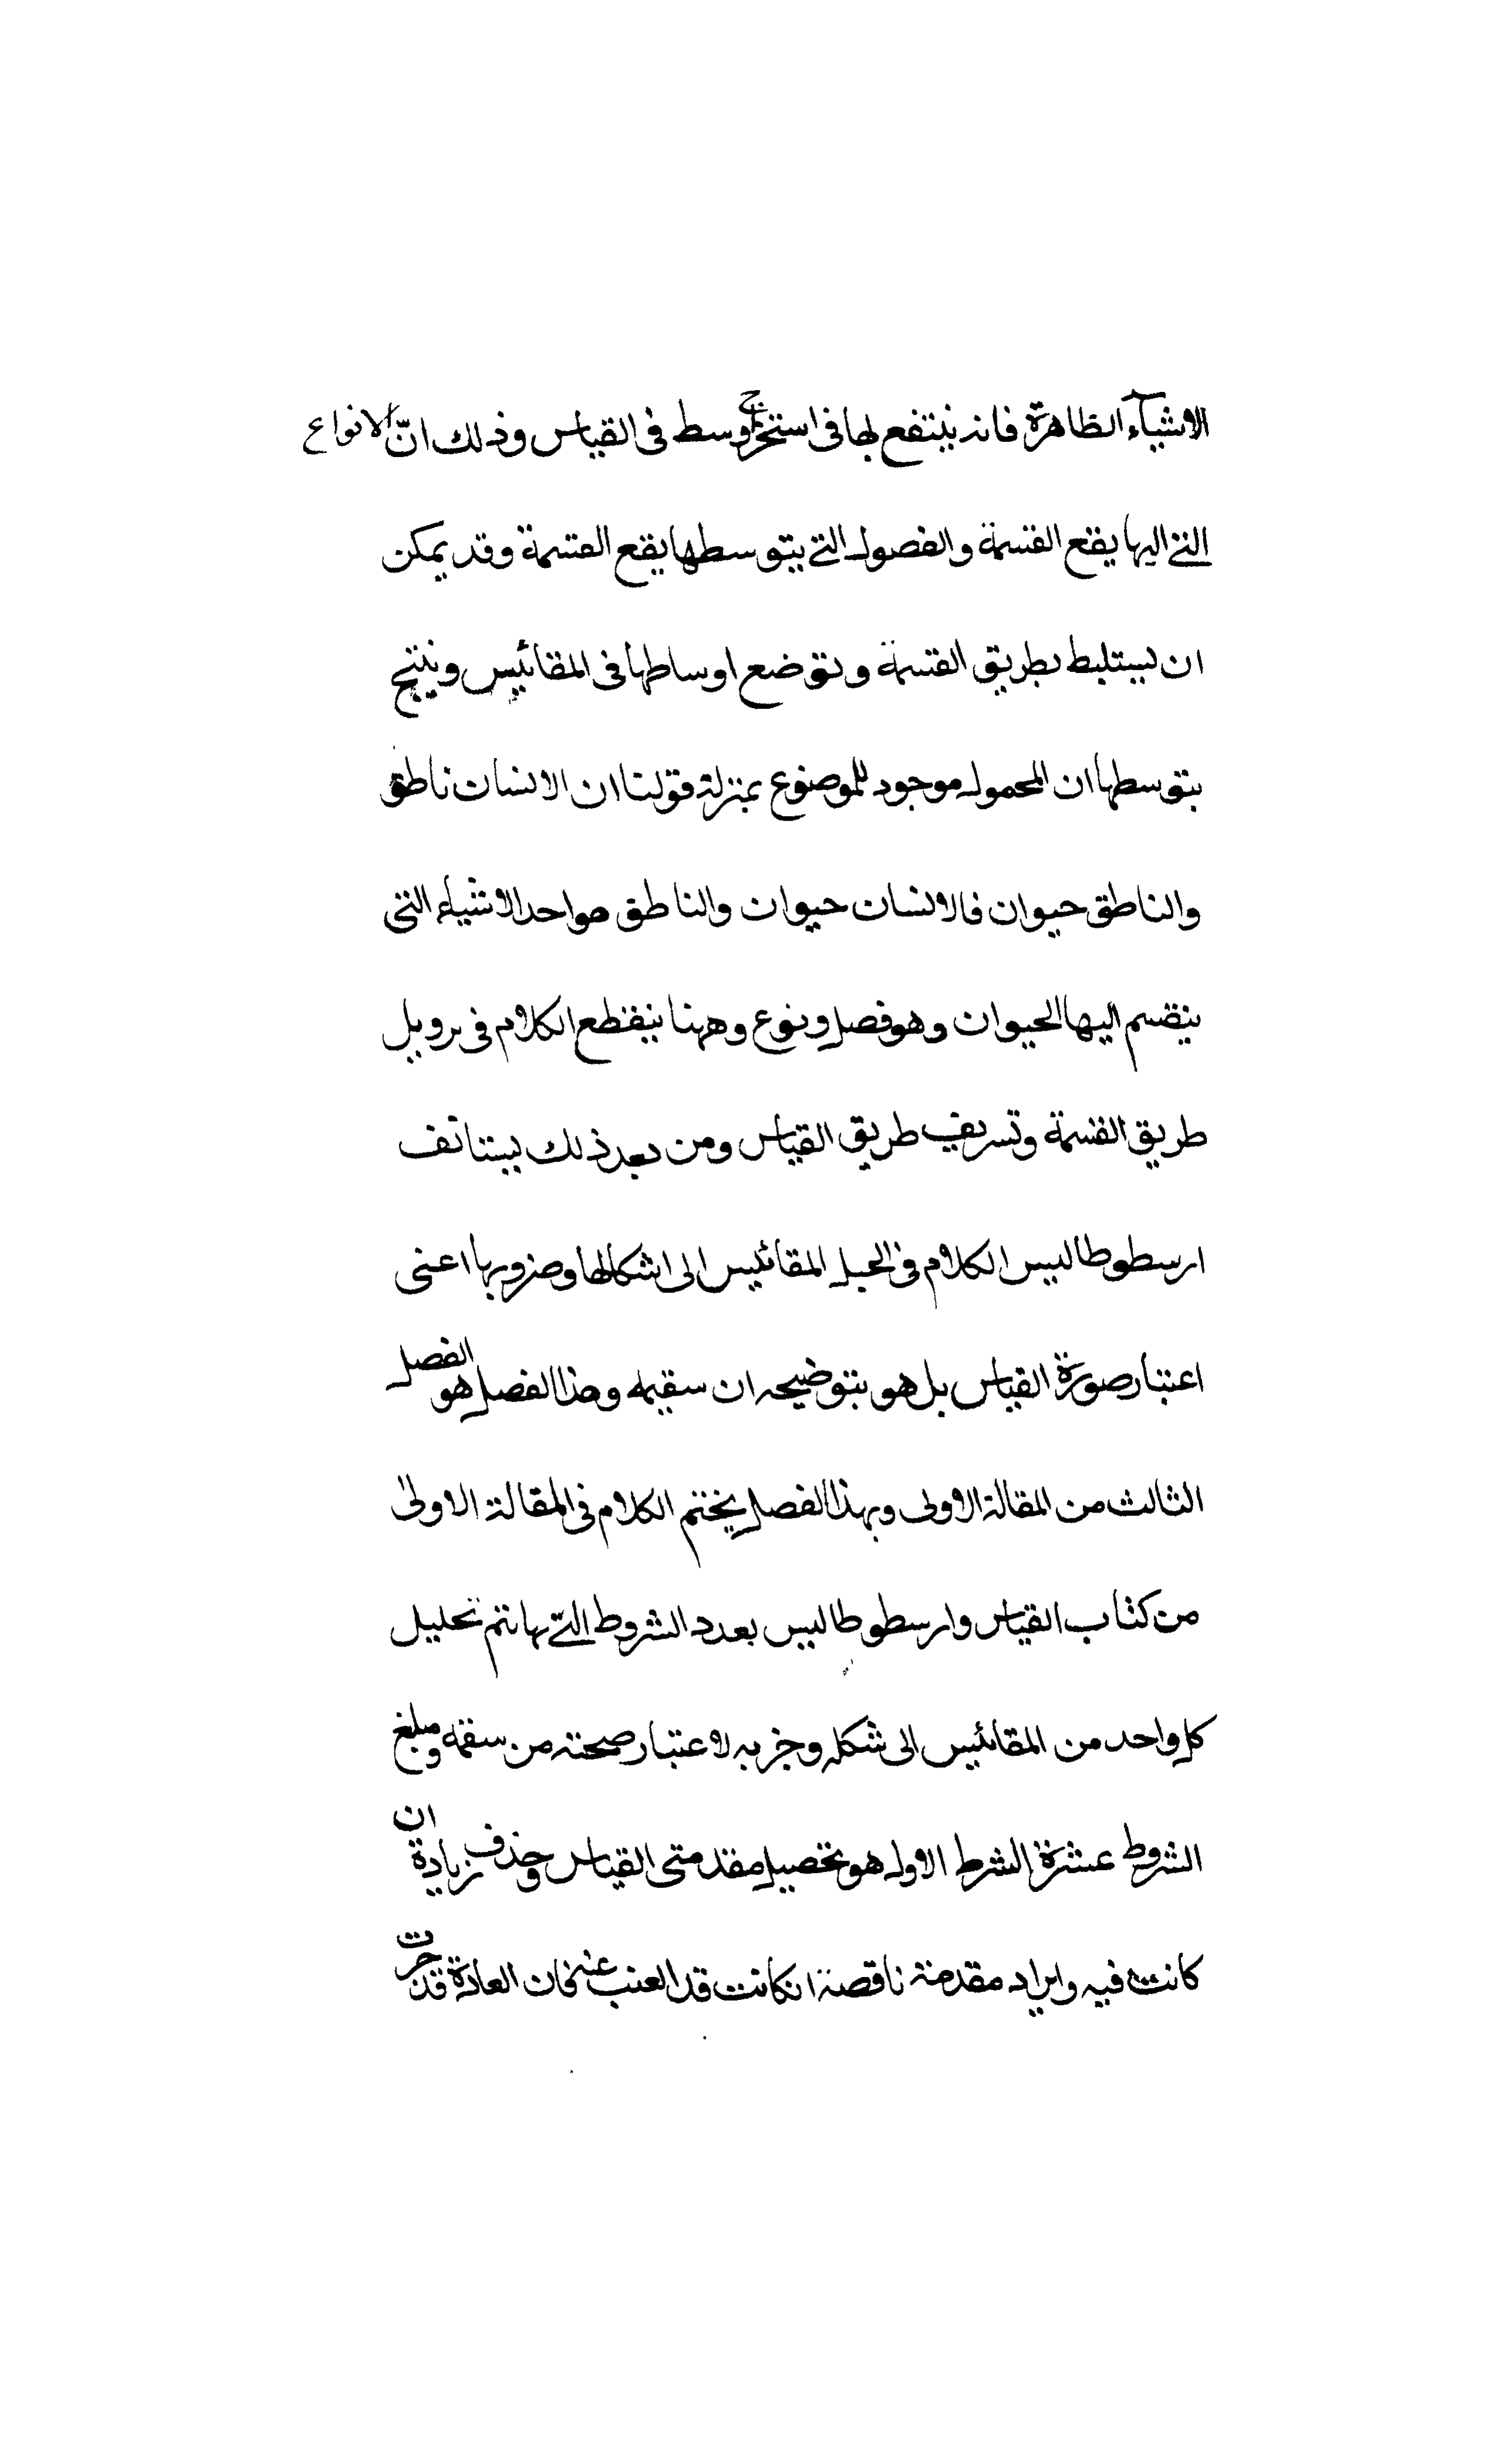 الاشياء الظاهرة فانه ينتفع بها فى استخراج وسط فى القياس وذلك انّ الانواع
التى اليها يقع القسمة والفصول التى بتوسطها يقع القسمة وقد يمكن
ان يستلبط بطريق القسمة وتوضع اوساطها فى المقائيس وينتج
بتوسطها ان المحمول موجود للموضوع بمنزلة قولنا ان الانسان ناطق
والناطق حيوان فالانسان حيوان والناطق هو احد الاشياء التى
ينقسم اليها الحيوان وهو فصل ونوع وههنا ينقطع الكلام فى
طريق القسمة وتسريف طريق القياس ومن بعد ذلك يستانف
ارسطوطاليس الكلام فى الحبل المقائيس الى اشكالها وضروبها اعنى
اعتبار صورة القياس بل هو بتوضيحه ان سقيمه وهذا الفصل هو الفصل
الثالث من المقالة الاولى وبهذا الفصل يختم الكلام فى المقالة الاولى
من كتاب القياس وارسطوطاليس بعدد الشروط التى بها تتم تحليل
كل واحد من المقائيس الى شكله وخربه لاعتبار صحته من سقمه ومبلغ
الشروط عشرة الشرط الاول هو تحصيل مقدمتى القياس وحذف زيادة ان
كانت فيه وايراد مقدمة ناقصة انكانت قد عنه فان العادة قد جرت